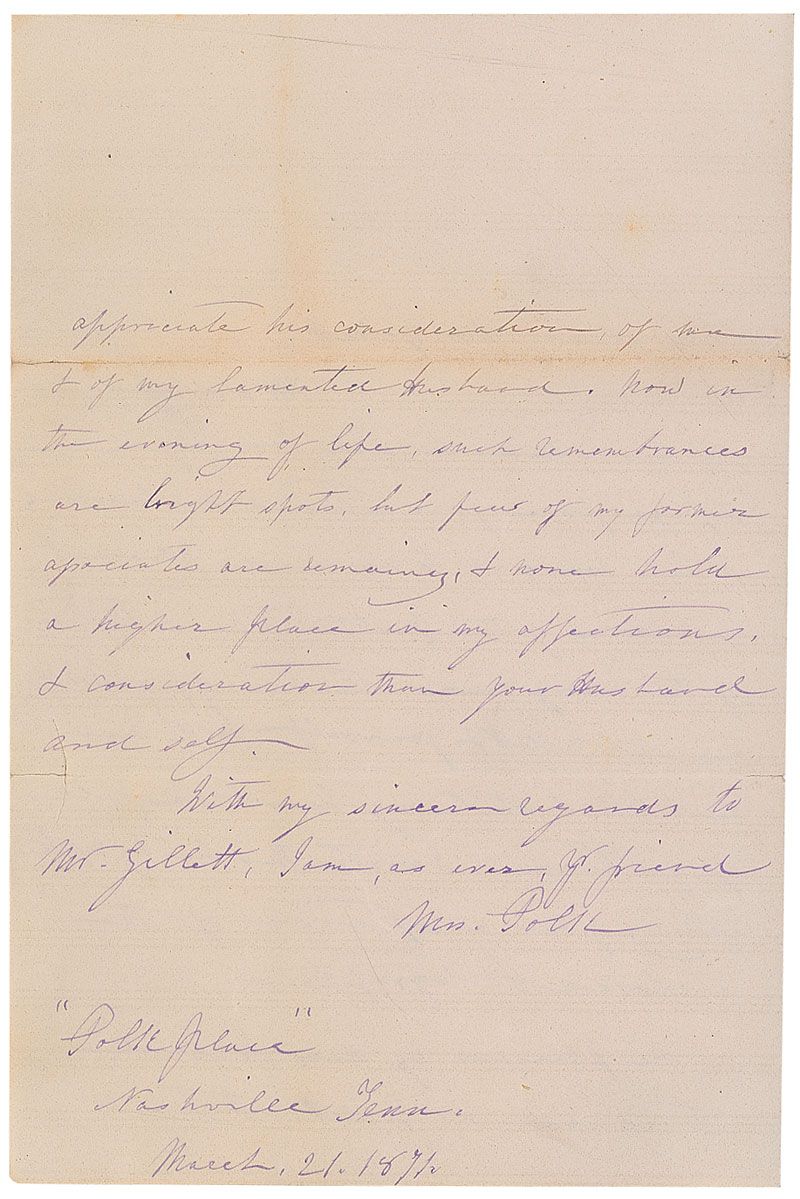 appriciate his consideration, of me
& of my lamented Husband. Now in
the evening of life, such remembrances
are bright spots. but few of my former
asociates are remaining, & none hold
a higher place in my affections,
& consideration than your Husband
and self.
With my sincere regards to
Mr. Gillett, I am, as ever, Yr. friend
Mrs. Polk
"Polk place"
Nashville Tenn.
March, 21. 1871.